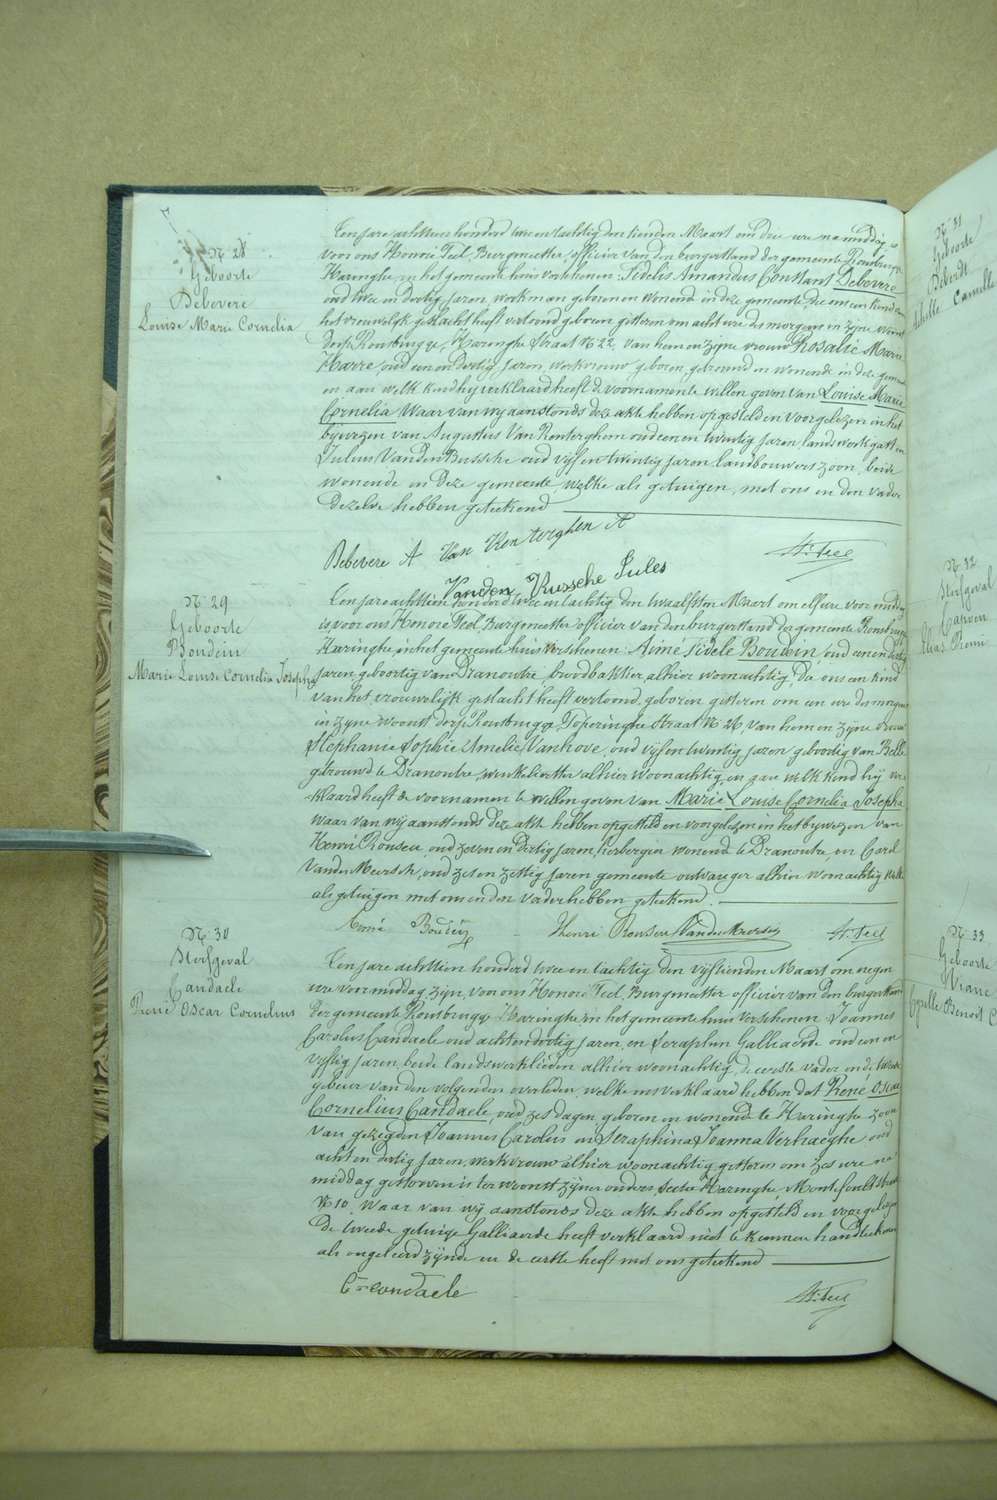 N 28
Geboorte
Debevere
Louise Marie Cornelia
Ten jare achttien honderd twee en tachtig den tienden Maart om drie ure namiddag is
voor ons Honoré Teel, Burgmeester officier van den burgerstand der gemeente Rousbrugge
Haringhe, in het gemeente huis verschenen: Fidelis Amandus Constant Debevre
oud twee en dertig jaren, werkman geboren en wonende in deze gemeente, die ons een kind van
het vrouwelijk geslacht heeft vertoond geboren gisteren om acht ure des morgens in zijne woonst
dorp Rousbrugge, Haringhe straat N 22, van hem en zijne vrouw Rosalie Marie
Harre, oud een en dertig jaren, werkvrouw geboren, getrouwd en wonende in deze gemeente
en aan welk kind hij verklaard heeft de voornamen te willen geven van Louise Marie
Cornelia Waar van wij aanstonds deze akte hebben opgesteld en voorgelezen in het
bijwezen van Augustus Van Renterghem oud een en twintig jaren, landswerkgast en
Julius Vanden Bussche oud vijf en twintig jaren landbouwers zoon, beide
wonende in deze gemeente welke als getuigen, met ons en den vader
dezelve hebben geteekend
Debevere A Van Renterghem A
Hre Teel
Vanden Bussche Jules
N 29
Geboorte
Boudein
Marie Louise Cornelia Josepha
Ten jare achttien honderd twee en tachtig den twaalfsten Maart om elf ure voor middag
is voor ons Honoré Teel, Burgemeester officier van den burgerstand der gemeente Rousbrugge
Haringhe in het gemeente huis verschenen: Aimé Fidele Boudein, oud een en dertig
jaren, geboortig van Dranoutre, broodbakker, alhier woonachtig, die ons een kind
van het vrouwelijk geslacht heeft vertoond, geboren gisteren om een ure des morgens
in zijne woonst dorp Rousbrugge Poperinghe straat N 26, van hem en zijne vrouw
Stephanie Sophie Amelie Vanhove, oud vijf en twintig jaren geboortig van Belle
getrouwd te Dranoutre, winkelierster alhier woonachtig, en aan welk kind hij ver
klaard heeft de voornamen te willen geven van Marie Louise Cornelia Josepha
waar van wij aanstonds deze akte hebben opgesteld en voorgelezen in het bijwezen van
Henri Rouseu, oud zeven en dertig jaren, herbergier wonende te Dranoutre, en Carel
Vander Meersch, oud zes en zestig jaren gemeente ontvanger alhier woonachtig welke
als getuigen met ons en den vader hebben geteekend.
Aimé Boudein Henri Rouseu Vandermeersch Hre Teel
N 30
Sterfgeval
Candaele
René Oscar Cornelius
Ten jare achttien honderd twee en tachtig den vijftienden Maart om negen
ure voormiddag, zijn, voor ons Honoré Teel, Burgmeester officier van den burgerstand
der gemeente Rousbrugge Haringhe, in het gemeente huis verschenen: Joannes
Carolus Candaele oud acht en dertig jaren, en Seraphin Galliaerde oud een en
vijftig jaren, beide landswerklieden alhier woonachtig, de eerste vader en de tweede
gebuer van den volgenden overleden, welke ons verklaard hebben dat René Oscar
Cornelius Candaele, oud zes dagen, geboren en wonende te Haringhe zoon
van gezegden Joannes Carolus en Seraphina Joanna Verhaeghe oud
acht en dertig jaren, werkvrouw alhier woonachtig, gisteren om zes ure na
middag gestorven is ter woonst zijner ouders, sectie Haringhe, straat
N 10, Waar van wij aanstonds deze akte hebben opgesteld en voorgelezen
De tweede getuige Galliaerde heeft verklaard niet te kunnen handteekenen
als ongeleerd zijnde en de eerste heeft met ons geteekend
Cs Candaele
Hre Teel
N 31
Geboorte
Achille Camille
N 32
Sterfgeval
Elias Remi
N 33
Geboorte
Benoit C